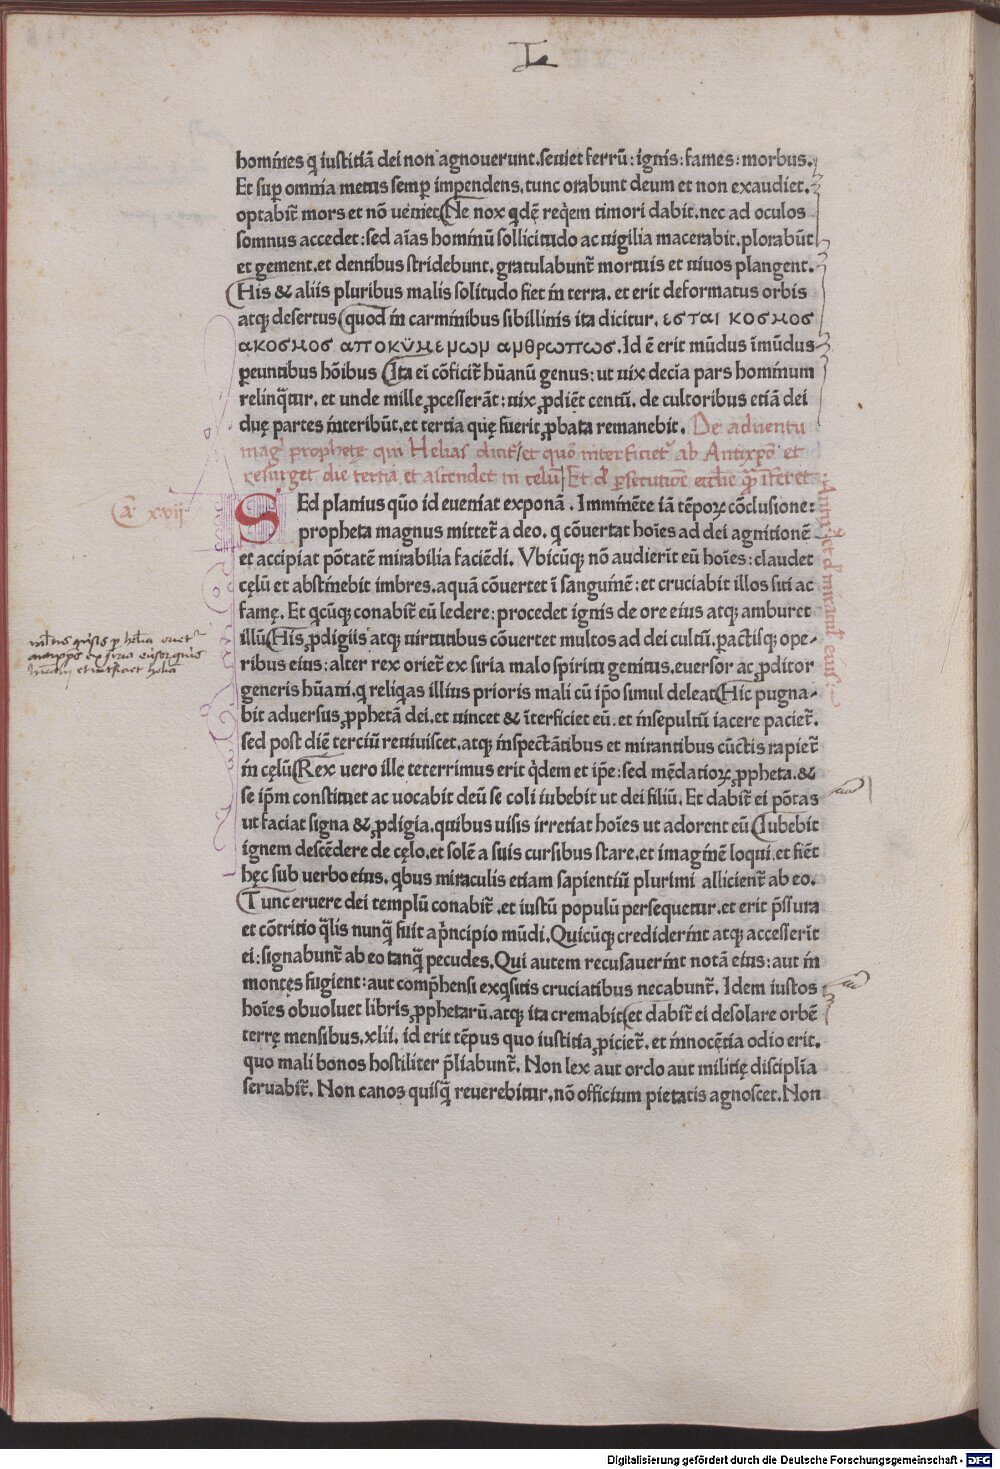 homines q iustitiā dei non agnouerunt. seuiet ferrū: ignis: fames: morbus.
Et suꝑ omnia metus semꝑ impendens. tunc orabunt deum et non exaudiet.
optabit̃ mors et nō ueniet. Ne nox qdē reqēm timori dabit. nec ad oculos
somnus accedet: sed aīas hominū sollicitudo ac uigilia macerabit. plorabūt
et gement. et dentibus stridebunt. gratulabunt̃ mortuis et uiuos plangent.
His & aliis pluribus malis solitudo fiet in terra. et erit deformatus orbis
atqꝫ desertus quod in carminibus sibillinis ita dicitur. εσται κοσμος
ακοσμος απ
Id ē erit mūdus īmūdus
ꝑeuntibus hōibus Ita ei cōficit̃ hūanū genus: ut uix decīa pars hominum
relinq̄tur. et unde mille ꝓcesserāt: uix ꝓdiēt centū. de cultoribus etiā dei
duę partes interibūt. et tertia quę fuerit ꝓbata remanebit. De aduentu
mag prophetę qui Helias dicit et quō interficiet ab Antixpō et
resurget die tertia et ascendet in celū Et d ꝑsecutione ecclie
Ca xvij
SEd planius quō id eueniat exponā. Imminēte iā tēpoꝝ cōclusione:
propheta magnus mittet̃ a deo. q cōuertat hoīes ad dei agnitionē
et accipiat pōtatē mirabilia faciēdi. Vbicūqꝫ nō audierīt eū hoīes: claudet
cęlū et abstinebit imbres. aquā cōuertet ī sanguinē: et cruciabit illos siti ac
famę. Et qcūqꝫ conabit̃ eū ledere: procedet ignis de ore eius atqꝫ amburet
illū His ꝓdigiis atqꝫ uirtutibus cōuertet multos ad dei cultū. ꝑactisqꝫ ope-
ribus eius: alter rex oriet̃ ex siria malo spiritu genitus. euersor ac ꝓditor
generis hūani. q reliqas illius prioris mali cū ip̄o simul deleat Hic pugna-
bit aduersus ꝓphetā dei. et uincet & īterficiet eū. et insepultū iacere paciet̃.
sed post diē terciū reuiuiscet. atqꝫ inspectātibus et mirantibus cūctis rapiet̃
in cęlū Rex uero ille teterrimus erit qdem et ip̄e: sed mēdatioꝝ ꝓpheta. &
se ip̄m constituet ac uocabit deū se coli iubebit ut dei filiū. Et dabit̃ ei pōtas
ut faciat signa & ꝓdigia. quibus uisis irretiat hoīes ut adorent eū Iubebit
ignem descēdere de cęlo. et solē a suis cursibus stare. et imaginē loqui. et fiēt
hęc sub uerbo eius. qbus miraculis etiam sapientiū plurimi allicient̃ ab eo.
Tunc eruere dei templū conabit̃. et iustū populū persequetur. et erit p̄ssura
et cōtritio q̄lis nunq̄ fuit a p̄ncipio mūdi. Quicūqꝫ crediderint atqꝫ accesserīt
ei: signabunt̃ ab eo tanq̄ pecudes. Qui autem recusauerint notā eius: aut in
montęs fugient: aut comp̄hensi exqsitis cruciatibus necabunt̃. Idem iustos
hoīes obuoluet libris ꝓphetarū. atqꝫ ita cremabit et dabit̃ ei desolare orbē
terrę mensibus. xlii. id erit tēpus quo iustitia ꝓiciet̃. et innocētia odio erit.
quo mali bonos hostiliter p̄liabunt̃. Non lex aut ordo aut militię disciplīa
seruabit̃. Non canos quisq̄ reuerebitur. nō officium pietatis agnoscet. Non
Digitalisierung gefördert durch die Deutsche Forschungsgemeinschaft - DFG